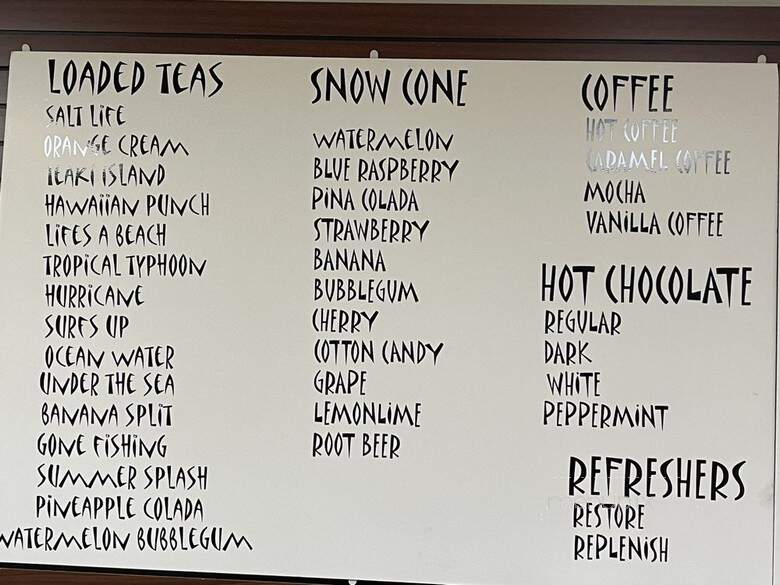 LOADED TEAS
SALT LIFE
ORANGE CREAM
TEAKI ISLAND
HAWAIIAN PUNCH
LIFES A BEACH
TROPICAL TYPHOON
HURRICANE
SURFS UP
OCEAN WATER
UNDER THE SEA
BANANA SPLIT
GONE FISHING
SUMMER SPLASH
PINEAPPLE COLADA
WATERMELON BUBBLEGUM
SNOW CONE
WATERMELON
BLUE RASPBERRY
PINA COLADA
STRAWBERRY
BANANA
BUBBLEGUM
CHERRY
COTTON CANDY
GRAPE
LEMONLIME
ROOT BEER
COFFEE
HOT COFFEE
CARAMEL COFFEE
MOCHA
VANILLA COFFEE
HOT CHOCOLATE
REGULAR
DARK
WHITE
PEPPERMINT
REFRESHERS
RESTORE
REPLENISH